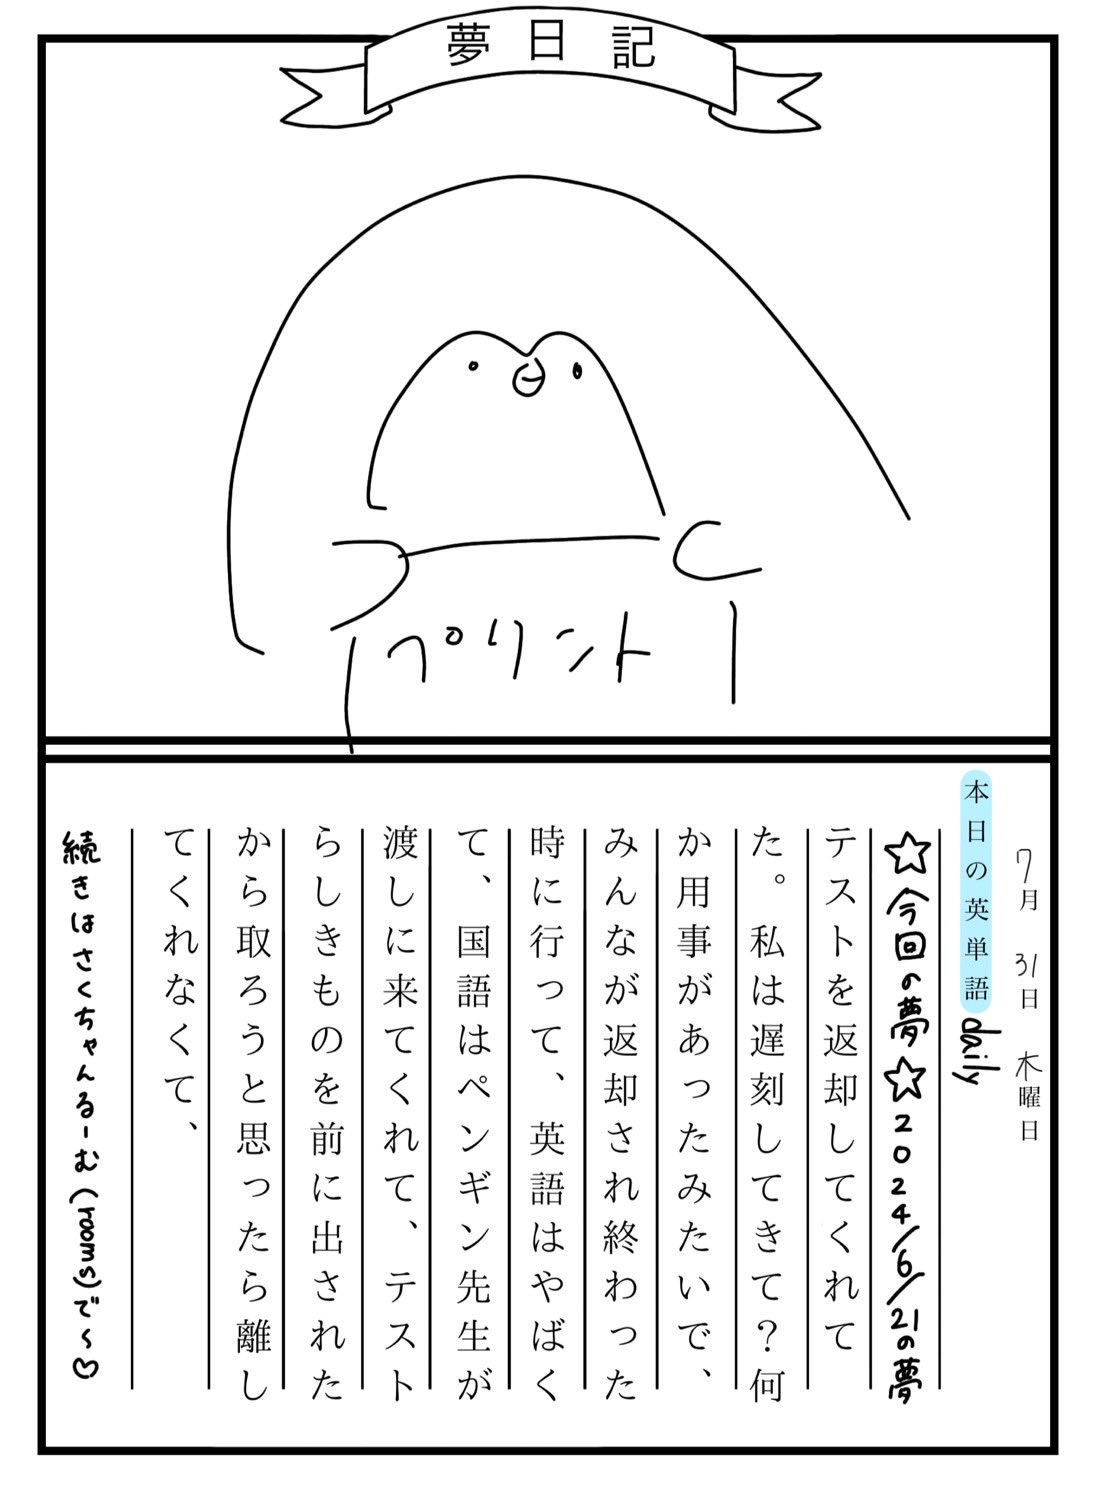 夢日記
プリント
7月 31日 木曜日
本日の英単語 daily
☆今回の夢☆2024/6/21の夢
テストを返却してくれて
た。私は遅刻してきて?何
か用事があったみたいで、
みんなが返却され終わった
時に行って、英語はやばく
て、国語はペンギン先生が
渡しに来てくれて、テスト
らしきものを前に出された
から取ろうと思ったら離し
てくれなくて、
続きはさくちゃんるーむ(rooms)で~♡